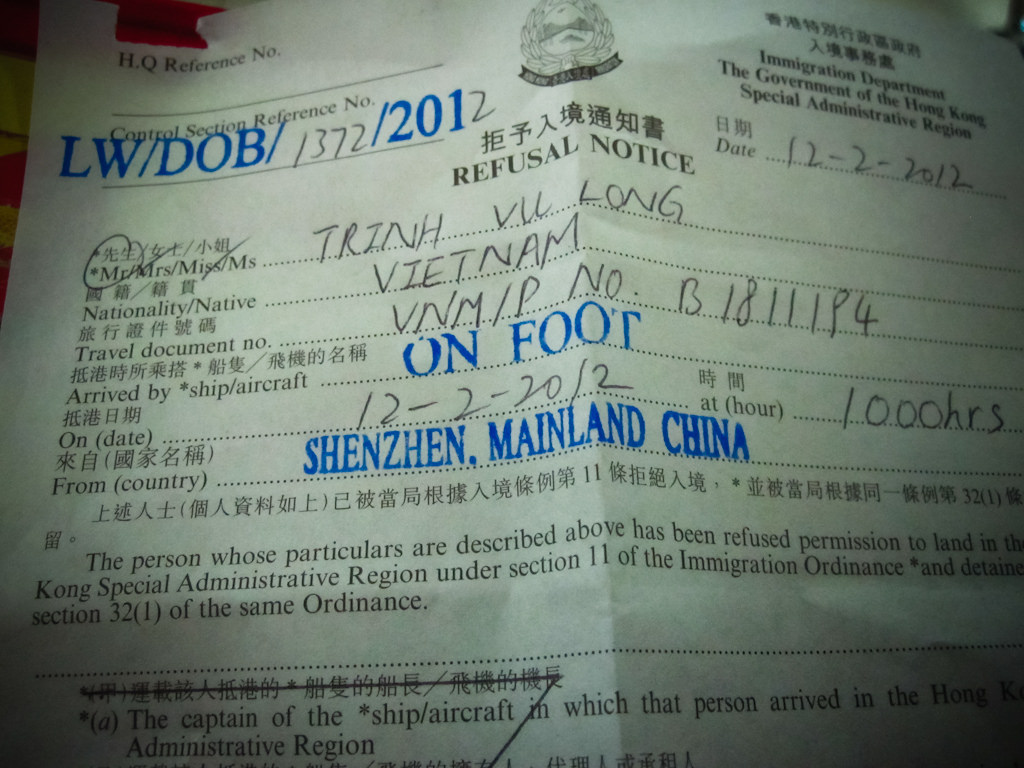 H.Q Reference No.
香港特別行政區政府
入境事務處
Immigration Department
The Government of the Hong Kong
Special Administrative Region
Control Section Reference No.
LW/DOB/1372/2012
拒予入境通知書
REFUSAL NOTICE
日期
Date 12-2-2012
*先生/女士/小姐
*Mr/Mrs/Miss/Ms TRINH VU LONG
國籍／籍貫
Nationality/Native VIETNAM
旅行證件號碼
Travel document no. VNM/P NO. B1811194
抵港時所乘搭*船隻／飛機的名稱
Arrived by *ship/aircraft ON FOOT
抵港日期
時間
On (date) 12-2-2012 at (hour) 1000hrs
來自(國家名稱)
From (country) SHENZHEN, MAINLAND CHINA
上述人士(個人資料如上)已被當局根據入境條例第11條拒絕入境，*並被當局根據同一條例第32(1)條
留。
The person whose particulars are described above has been refused permission to land in the
Kong Special Administrative Region under section 11 of the Immigration Ordinance *and detaine
section 32(1) of the same Ordinance.
*(甲)運載該人抵港的*船隻的船長／飛機的機長
*(a) The captain of the *ship/aircraft in which that person arrived in the Hong K
Administrative Region